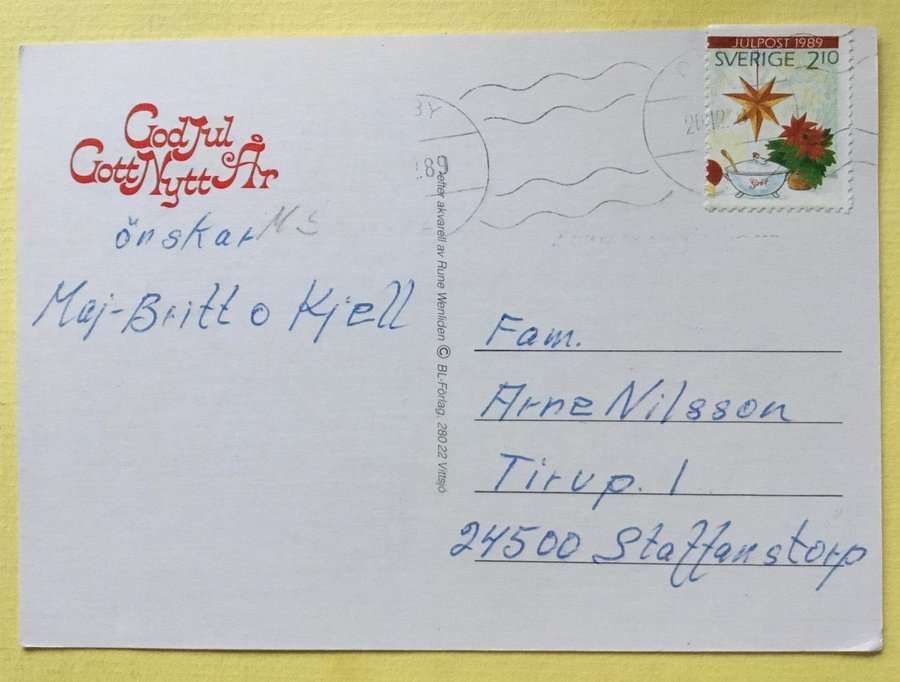 God Jul
Gott Nytt År
önskar
Maj-Britt o Kjell
efter akvarell av Rune Wenliden © BL-Förlag, 280 22 Vittsjö
JULPOST 1989
SVERIGE 2 10
Fam.
Arne Nilsson
Tirup. 1
24500 Staffanstorp